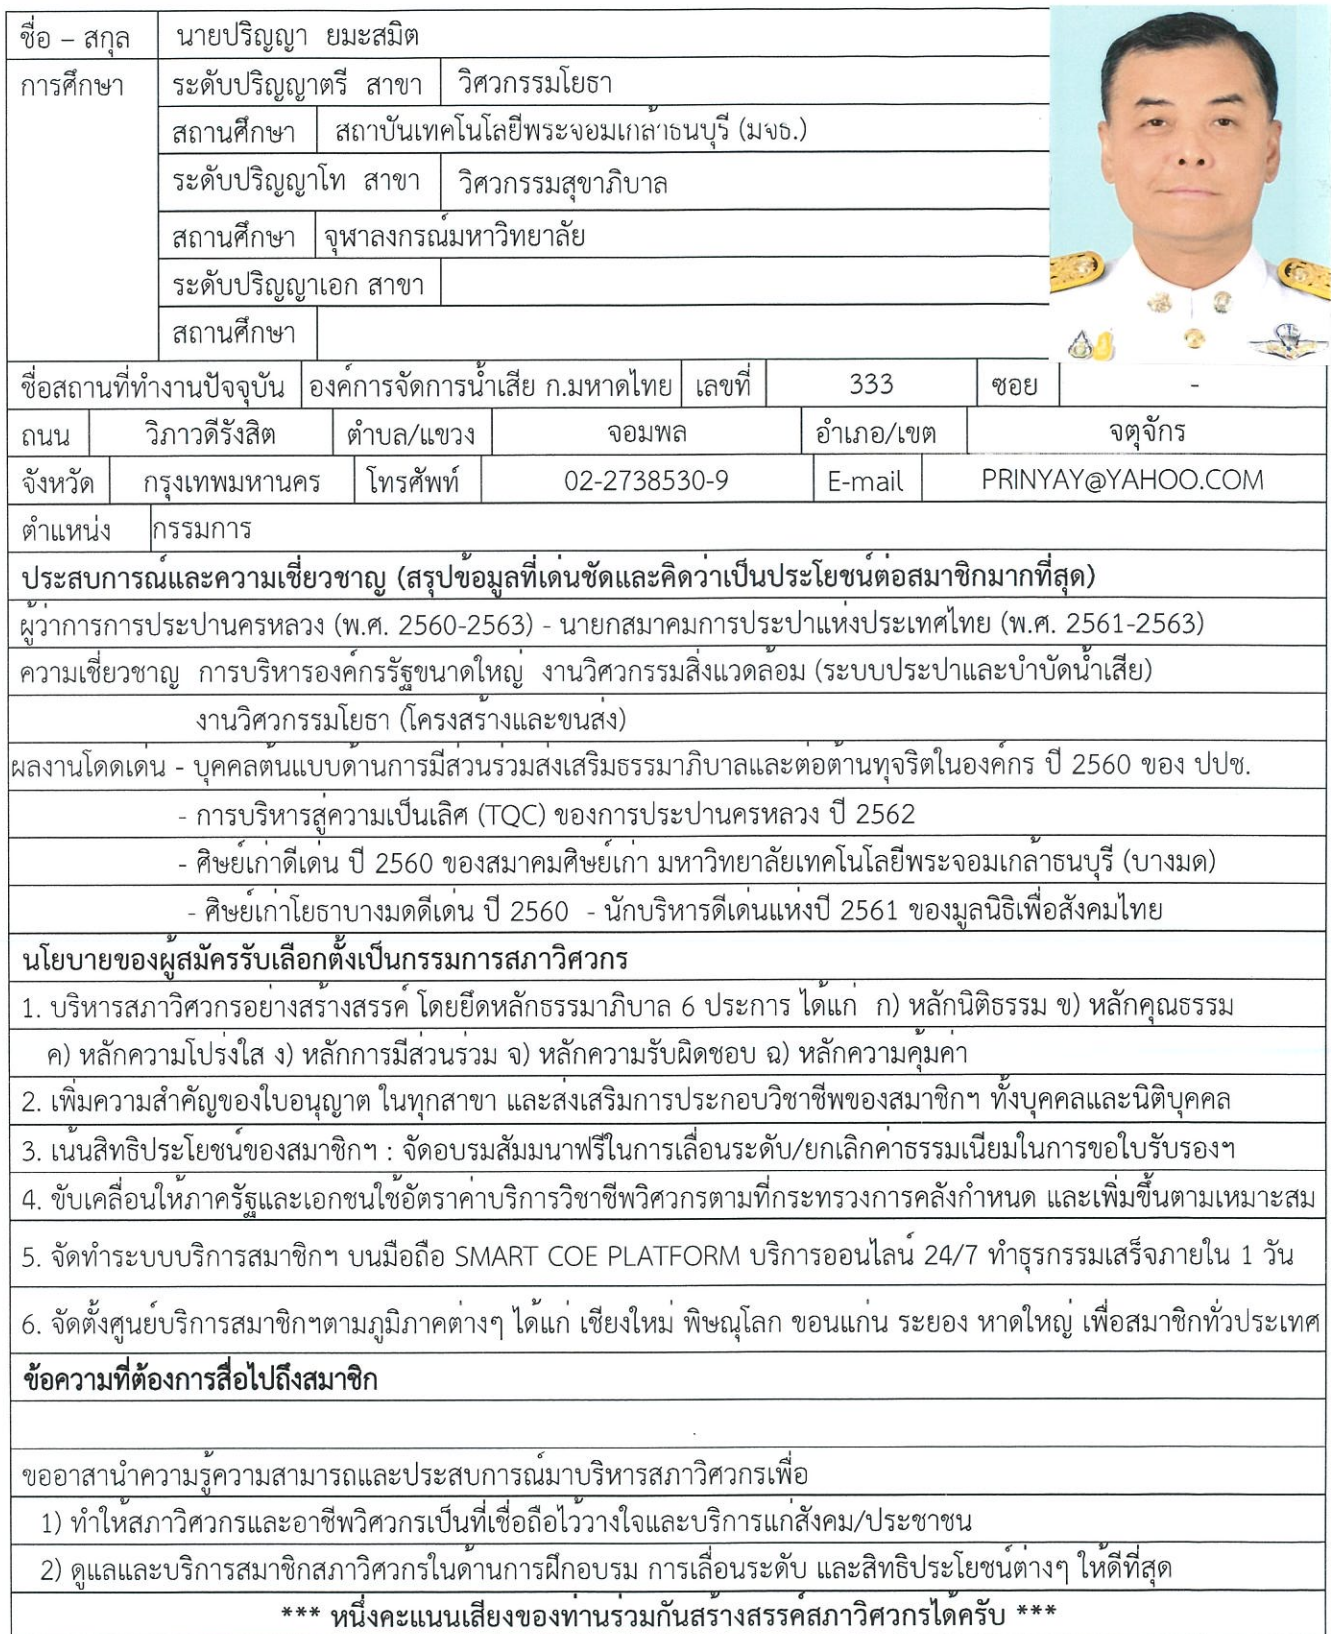 ชื่อ – สกุล นายปริญญา ยมะสมิต
การศึกษา ระดับปริญญาตรี สาขา วิศวกรรมโยธา
สถานศึกษา สถาบันเทคโนโลยีพระจอมเกล้าธนบุรี (มจธ.)
ระดับปริญญาโท สาขา วิศวกรรมสุขาภิบาล
สถานศึกษา จุฬาลงกรณ์มหาวิทยาลัย
ระดับปริญญาเอก สาขา
สถานศึกษา
ชื่อสถานที่ทำงานปัจจุบัน องค์การจัดการน้ำเสีย ก.มหาดไทย เลขที่ 333 ซอย -
ถนน วิภาวดีรังสิต ตำบล/แขวง จอมพล อำเภอ/เขต จตุจักร
จังหวัด กรุงเทพมหานคร โทรศัพท์ 02-2738530-9 E-mail PRINYAY@YAHOO.COM
ตำแหน่ง กรรมการ
ประสบการณ์และความเชี่ยวชาญ (สรุปข้อมูลที่เด่นชัดและคิดว่าเป็นประโยชน์ต่อสมาชิกมากที่สุด)
ผู้ว่าการการประปานครหลวง (พ.ศ. 2560-2563) - นายกสมาคมการประปาแห่งประเทศไทย (พ.ศ. 2561-2563)
ความเชี่ยวชาญ การบริหารองค์กรรัฐขนาดใหญ่ งานวิศวกรรมสิ่งแวดล้อม (ระบบประปาและบำบัดน้ำเสีย)
งานวิศวกรรมโยธา (โครงสร้างและขนส่ง)
ผลงานโดดเด่น - บุคคลต้นแบบด้านการมีส่วนร่วมส่งเสริมธรรมาภิบาลและต่อต้านทุจริตในองค์กร ปี 2560 ของ ปปช.
- การบริหารสู่ความเป็นเลิศ (TQC) ของการประปานครหลวง ปี 2562
- ศิษย์เก่าดีเด่น ปี 2560 ของสมาคมศิษย์เก่า มหาวิทยาลัยเทคโนโลยีพระจอมเกล้าธนบุรี (บางมด)
- ศิษย์เก่าโยธาบางมดดีเด่น ปี 2560 - นักบริหารดีเด่นแห่งปี 2561 ของมูลนิธิเพื่อสังคมไทย
นโยบายของผู้สมัครรับเลือกตั้งเป็นกรรมการสภาวิศวกร
1. บริหารสภาวิศวกรอย่างสร้างสรรค์ โดยยึดหลักธรรมาภิบาล 6 ประการ ได้แก่ ก) หลักนิติธรรม ข) หลักคุณธรรม
ค) หลักความโปร่งใส ง) หลักการมีส่วนร่วม จ) หลักความรับผิดชอบ ฉ) หลักความคุ้มค่า
2. เพิ่มความสำคัญของใบอนุญาต ในทุกสาขา และส่งเสริมการประกอบวิชาชีพของสมาชิกฯ ทั้งบุคคลและนิติบุคคล
3. เน้นสิทธิประโยชน์ของสมาชิกฯ : จัดอบรมสัมมนาฟรีในการเลื่อนระดับ/ยกเลิกค่าธรรมเนียมในการขอใบรับรองฯ
4. ขับเคลื่อนให้ภาครัฐและเอกชนใช้อัตราค่าบริการวิชาชีพวิศวกรตามที่กระทรวงการคลังกำหนด และเพิ่มขึ้นตามเหมาะสม
5. จัดทำระบบบริการสมาชิกฯ บนมือถือ SMART COE PLATFORM บริการออนไลน์ 24/7 ทำธุรกรรมเสร็จภายใน 1 วัน
6. จัดตั้งศูนย์บริการสมาชิกฯตามภูมิภาคต่างๆ ได้แก่ เชียงใหม่ พิษณุโลก ขอนแก่น ระยอง หาดใหญ่ เพื่อสมาชิกทั่วประเทศ
ข้อความที่ต้องการสื่อไปถึงสมาชิก
ขออาสานำความรู้ความสามารถและประสบการณ์มาบริหารสภาวิศวกรเพื่อ
1) ทำให้สภาวิศวกรและอาชีพวิศวกรเป็นที่เชื่อถือไว้วางใจและบริการแก่สังคม/ประชาชน
2) ดูแลและบริการสมาชิกสภาวิศวกรในด้านการฝึกอบรม การเลื่อนระดับ และสิทธิประโยชน์ต่างๆ ให้ดีที่สุด
*** หนึ่งคะแนนเสียงของท่านร่วมกันสร้างสรรค์สภาวิศวกรได้ครับ ***